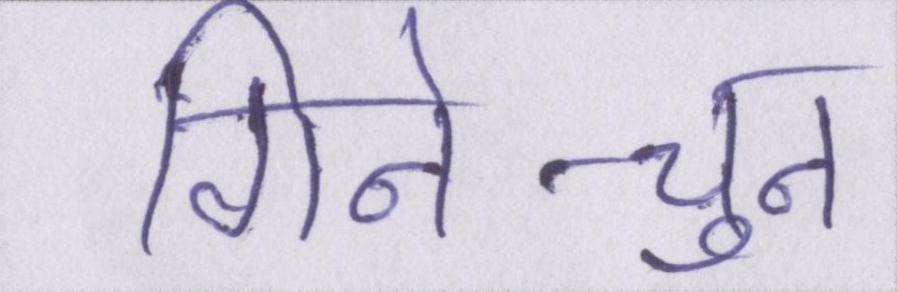 गिने-चुन